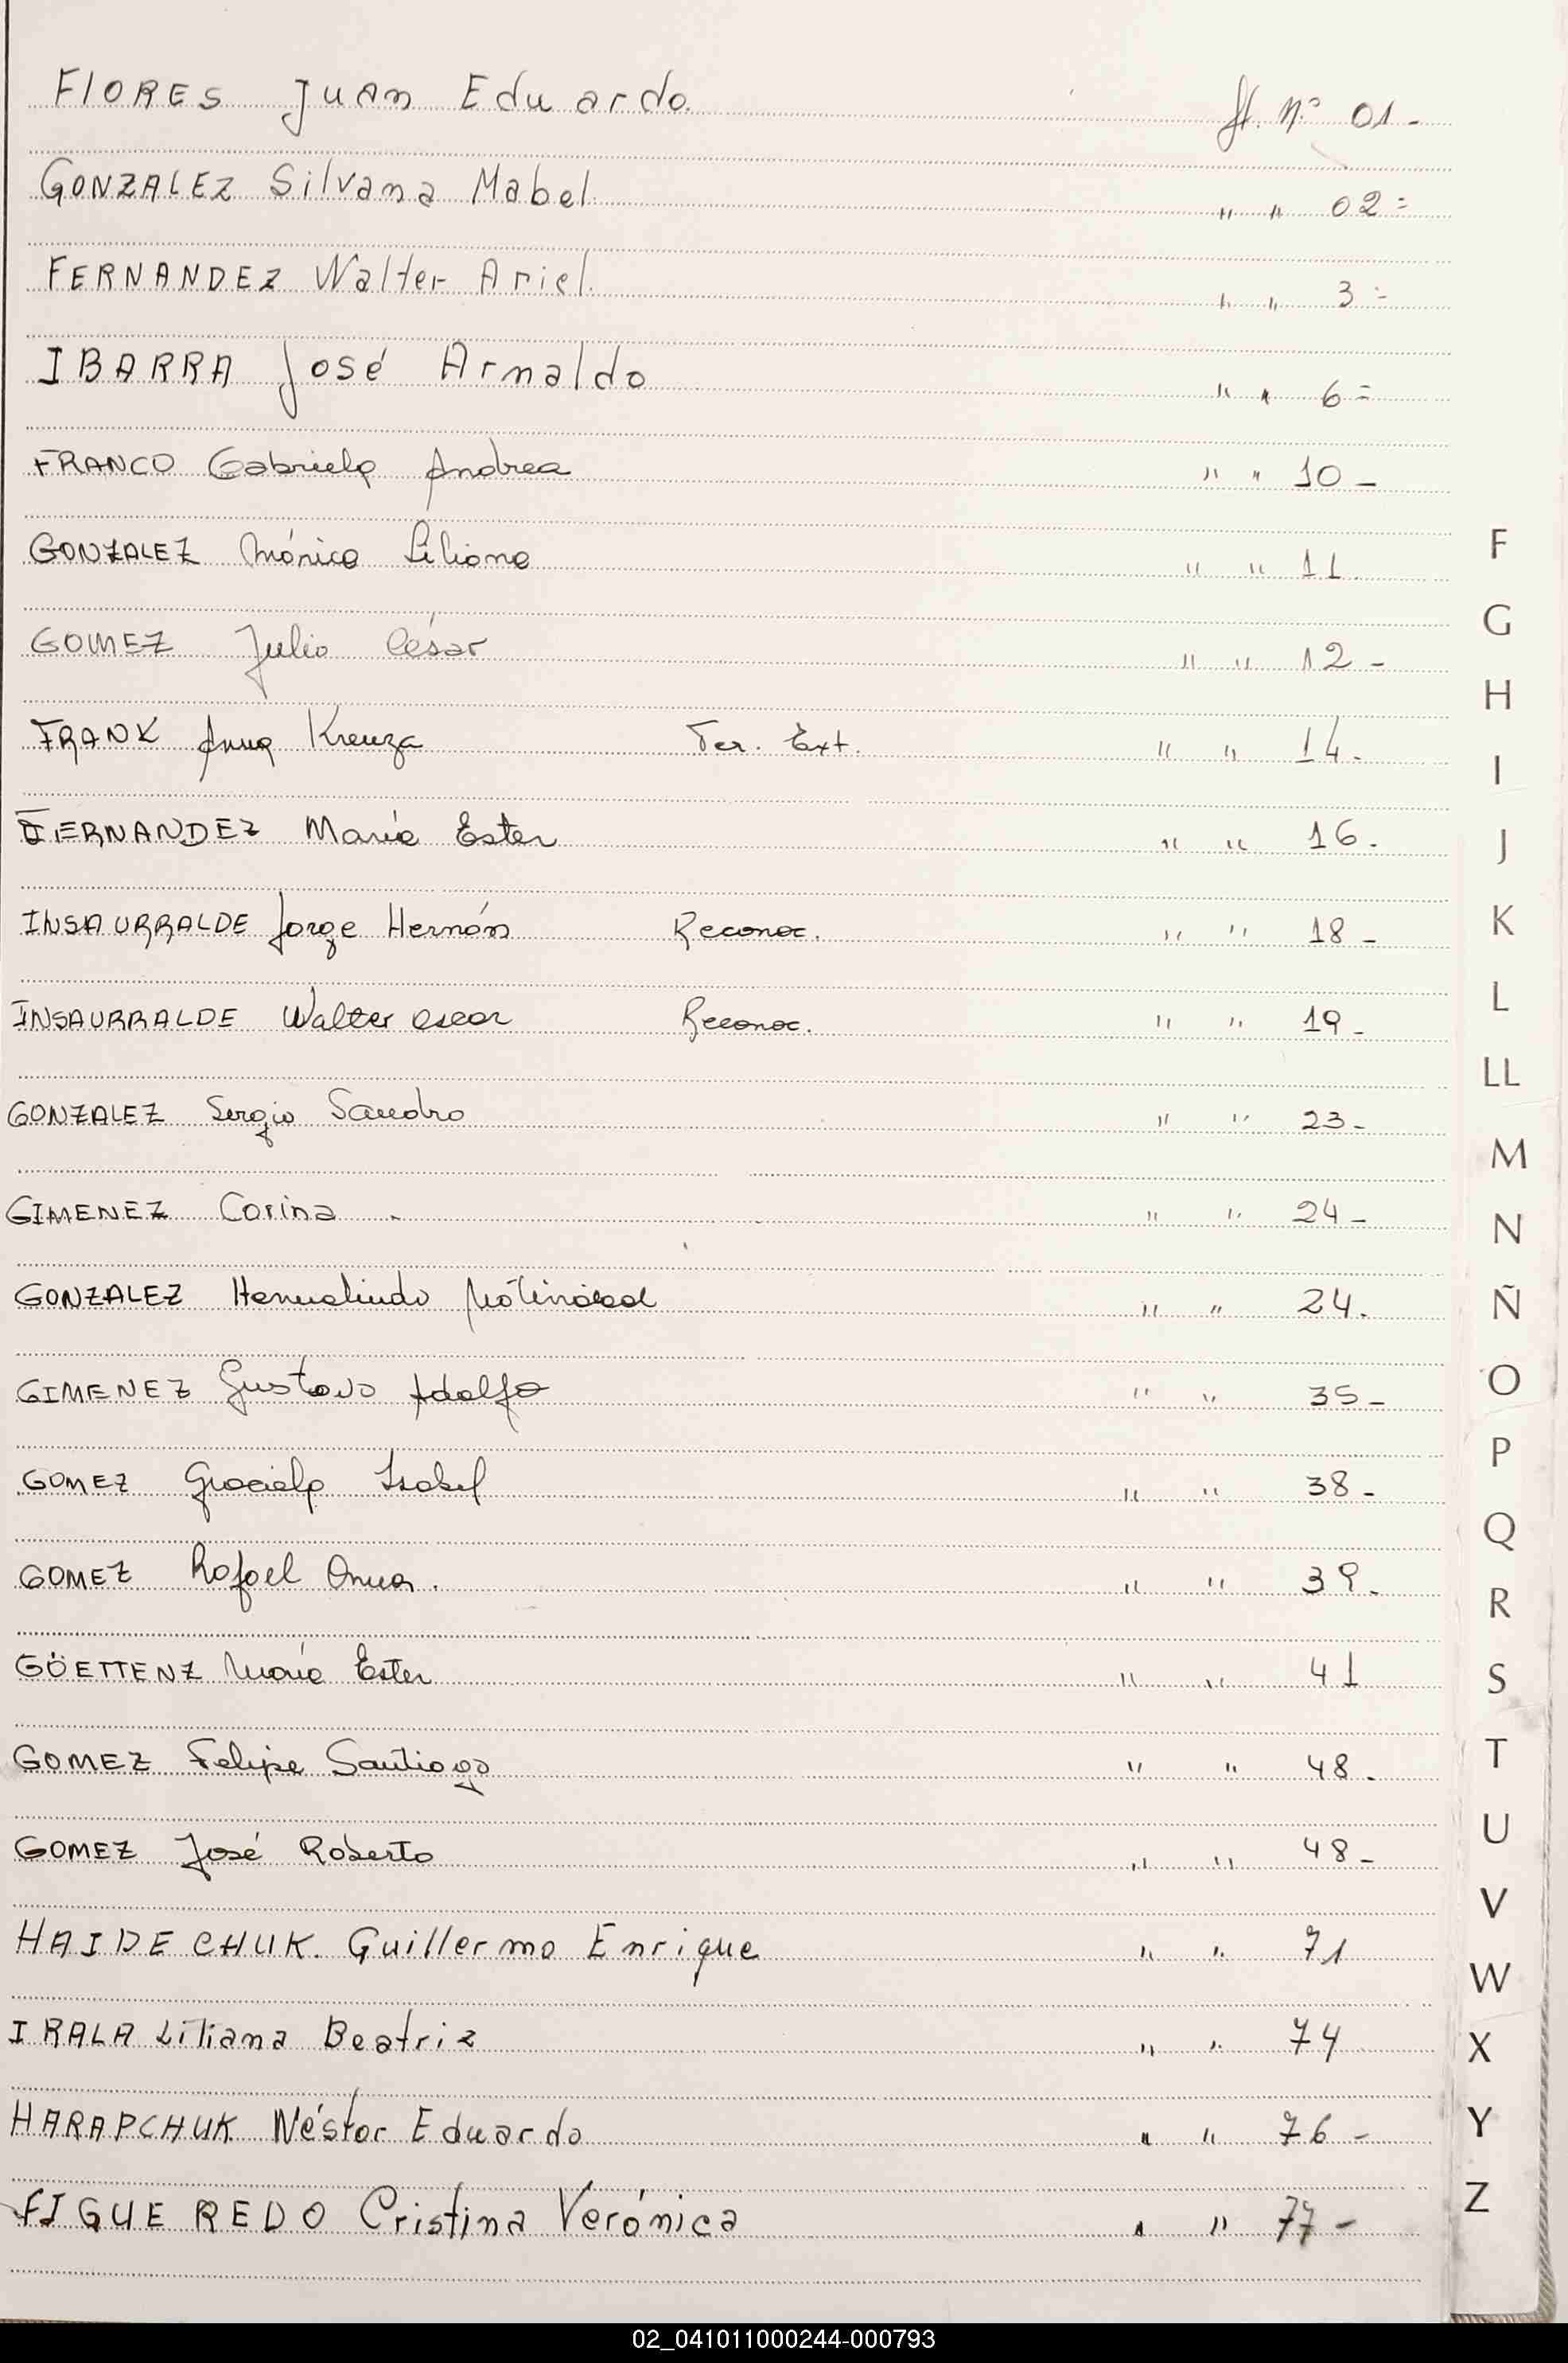 FLORES Juan Eduardo. ff. nº 01-
GONZALEZ Silvana Mabel. " " 02=
FERNANDEZ Walter Ariel. " " 3=
IBARRA José Arnaldo " " 6=
FRANCO Gabriela Andrea " " 10-
GONZALEZ Mónica Liliana " " 11.
GOMEZ Julio César " " 12-
FRANK Anna Ter. Ext. " " 14-
FERNANDEZ María Ester " " 16.
INSAURRALDE Jorge Hernán Reconoc. " " 18-
INSAURRALDE Walter Oscar Reconoc. " " 19-
GONZALEZ Sergio Sandro " " 23-
GIMENEZ Corina - " " 24-
GONZALEZ " " 24.
GIMENEZ Gustavo Adolfo " " 35-
GOMEZ Graciela Isabel " " 38-
GOMEZ Rafael Omar. " " 39-
GÖETTENZ María Ester " " 41
GOMEZ Felipe Santiago " " 48.
GOMEZ José Roberto " " 48-
HAIDECHUK. Guillermo Enrique " " 71
IRALA Liliana Beatriz " " 74
HARAPCHUK Néstor Eduardo " " 76-
FIGUEREDO Cristina Verónica " " 77-
F
G
H
I
J
K
L
LL
M
N
Ñ
O
P
Q
R
S
T
U
V
W
X
Y
Z
02_041011000244-000793